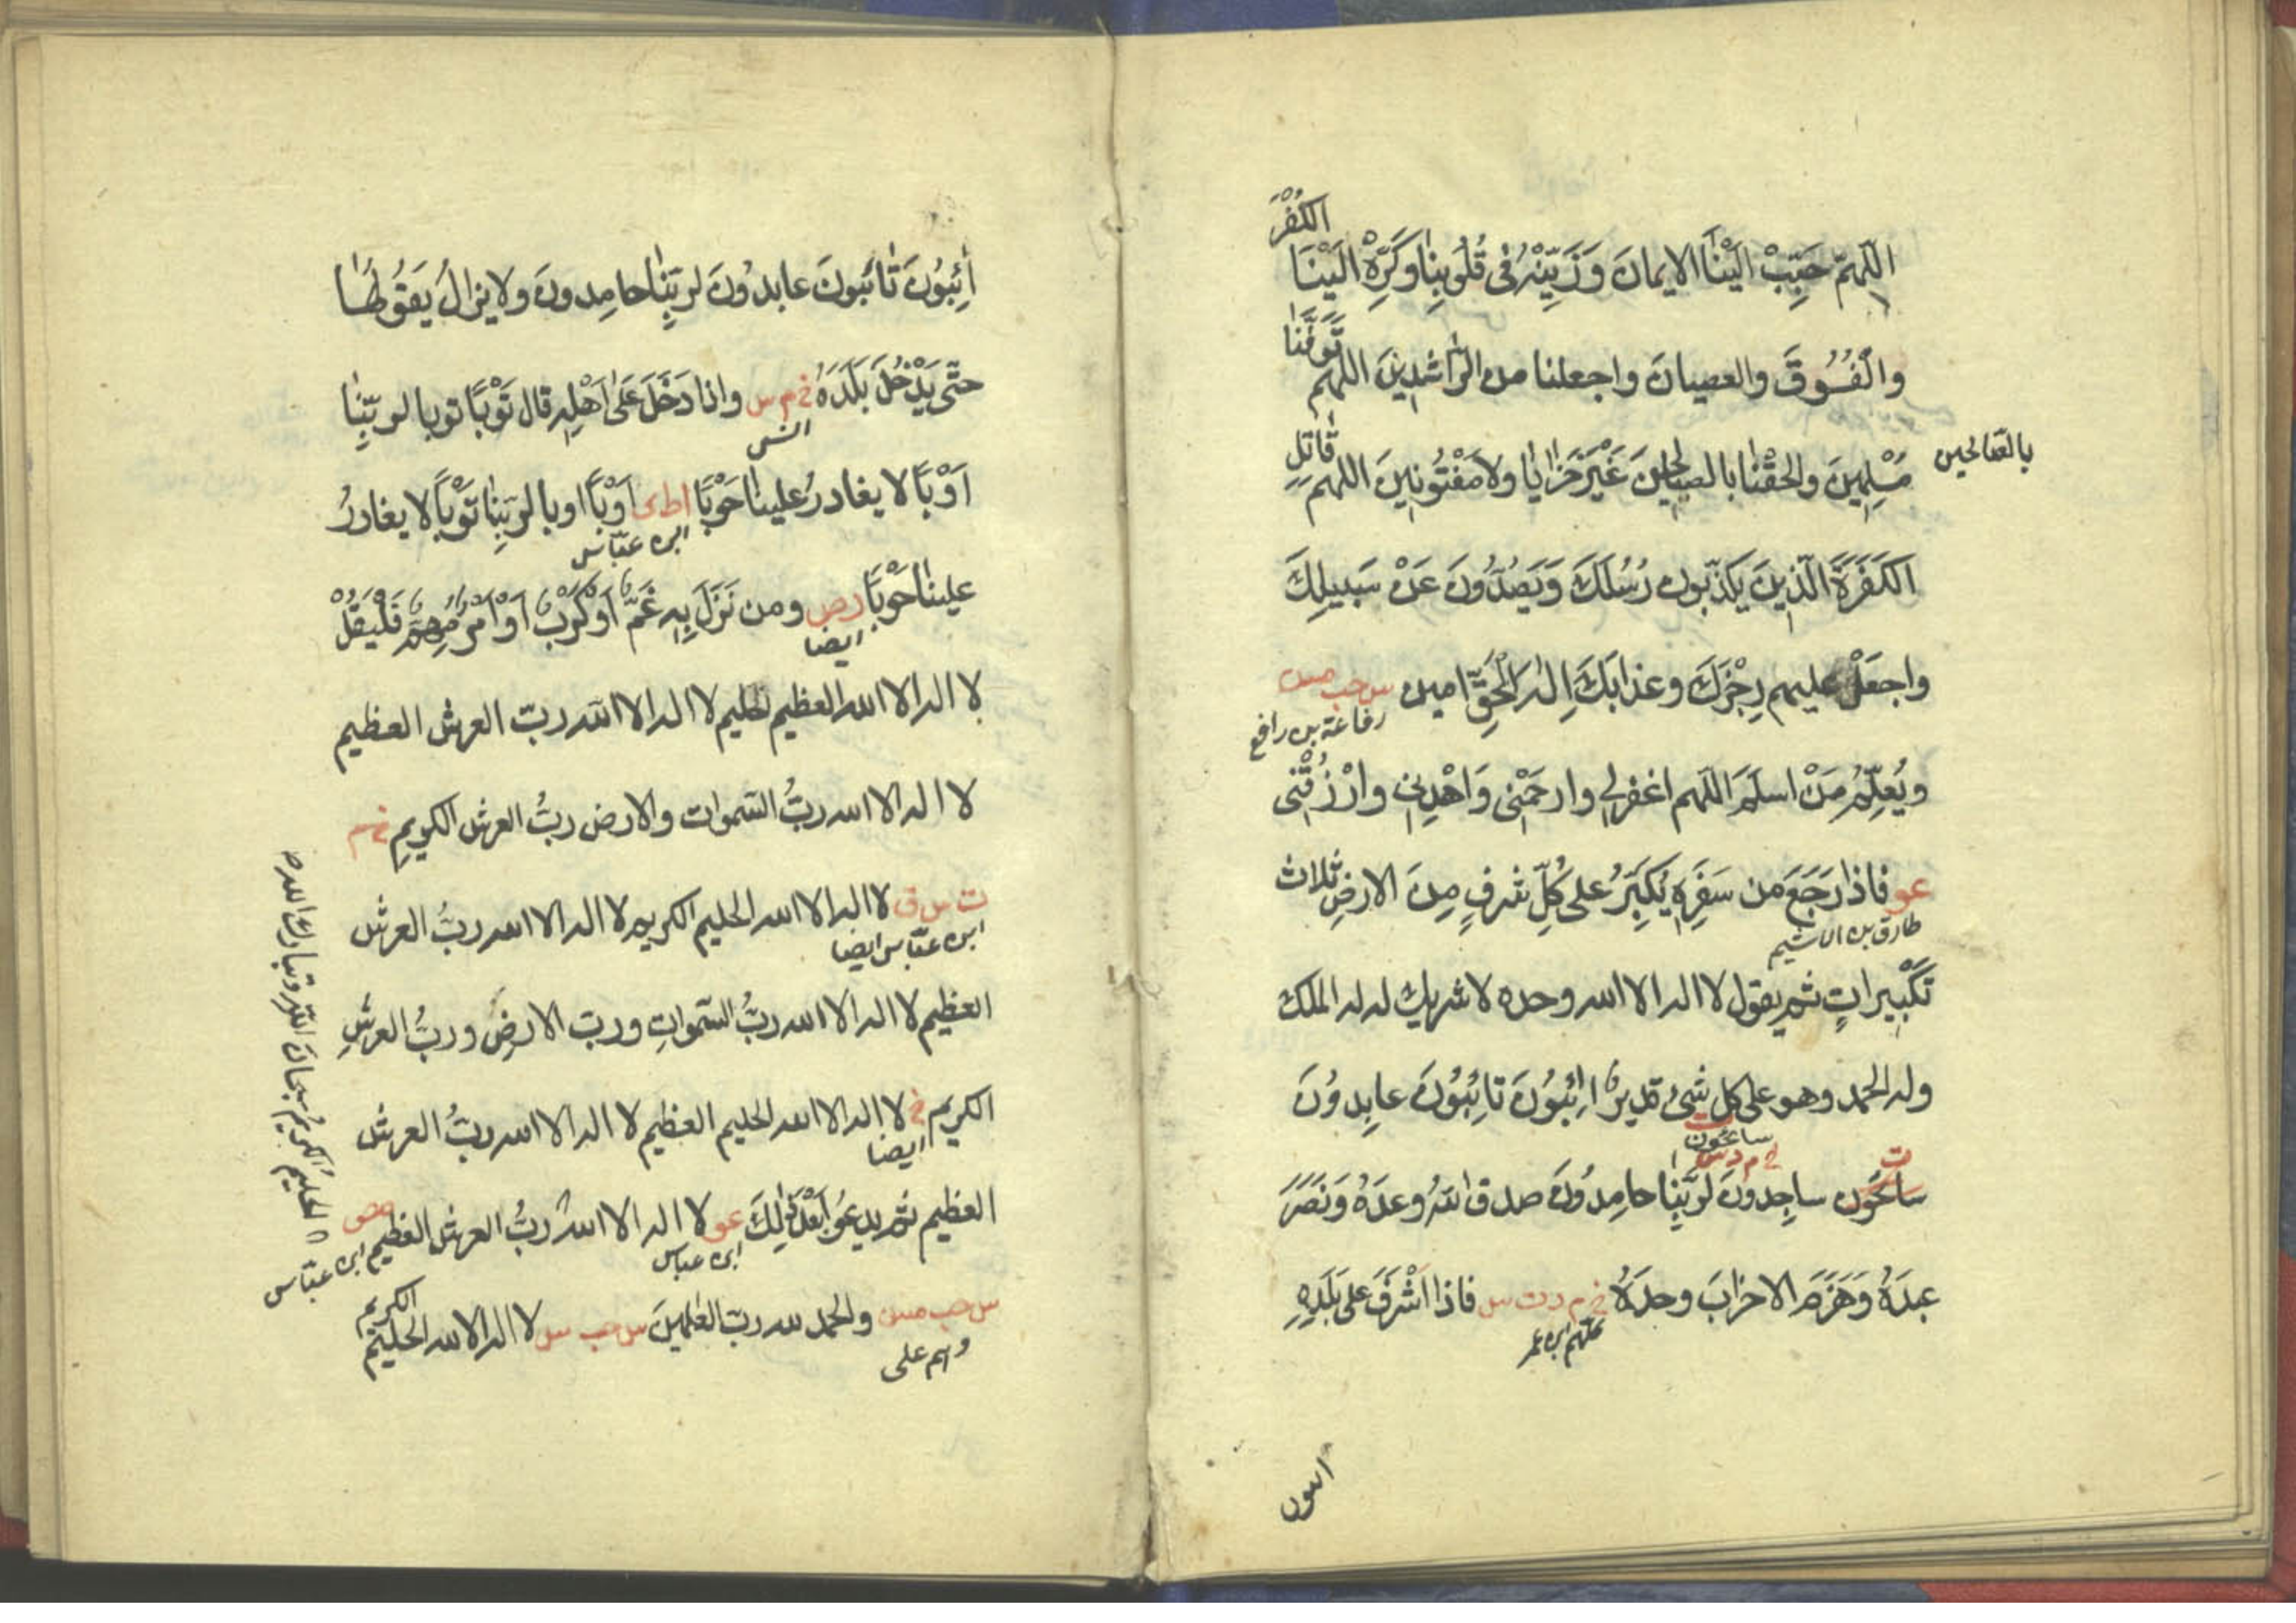 الكُفْرَ
اللّهمّ حَبِّبْ اِلَيْنَا الايمانَ وَزَيِّنْهُ فى قُلُوبِنا وكَرِّهْ اِلَيْنَا
تَوَفَّنَا
والْفُسُوقَ والعصيانَ واجعلنا من الرّاشدِينَ اللهم
قاتِلِ
مُسْلِمِينَ والحقْنا بالصالحينَ غَيْرَ خَزايا ولا مَفْتُونِينَ اللهم
بالصّالحين
الكَفَرَةَ الّذِينَ يكذّبون رُسُلَكَ وَيَصُدُّونَ عَنْ سَبِيلِكَ
واجعَلْ عليهم رِجْزَكَ وعذابَكَ اِلهَ الحَقِّ امين س حب مس
رفاعة بن رافع
ويُعلِّمُ مَنْ اسلَمَ اللّهم اغفرلى وارحَمْنى وَاهْدِنى وارْزُقْنى
عو فاذا رَجَعَ من سَفَرِهِ يُكبِّرُ على كُلِّ شرفٍ مِنَ الارضِ ثلاث
طارق بن الاشيم
تكْبِيراتٍ ثم يقول لا اله الا الله وحده لا شريك له له الملك
وله الحمد وهو على كل شىء قدير ائِبُونَ تائِبُونَ عابِدُونَ
ت
سائحون
ت
خ م د س
سائحُون ساجِدونَ لرَبِّنا حامِدُونَ صدق اللهُ وعدَهُ وَنَصَرَ
عبدَهُ وَهَزَمَ الاحزابَ وحدَهُ خ م د ت س فاذا اَشْرَفَ على بَلَدِهِ
كلهم ابن عمر
ائبون
اٰئِبُونَ تائبونَ عابدُونَ لربِّنا حامِدونَ ولا يزالُ يَقُولُها
حتّى يَدْخُلَ بَلَدَهُ خ م س واذا دَخَلَ عَلى اَهْلِهِ قال تَوْبًا توبا لربّنا
انس
اَوْبًا لا يغادرُ علينا حَوْبًا ا ط ى اَوْبًا اوبا لربّنا تَوْبًا لا يغادرُ
ابن عبّاس
علينا حَوْبًا ر ص ومن نَزَلَ بِهِ غَمٌّ اَوْ كَرْبٌ اَوْ اَمْرٌ مُهِمٌّ فَلْيَقُلْ
ايضا
لا اله الا الله العظيم الحليم لا اله الا الله ربّ العرش العظيم
لا اله الا الله ربُّ السّموات والارض ربُّ العرش الكريمِ خ م
ت س ق لا اله الا الله الحليم الكريم لا اله الا الله ربُّ العرش
ابن عبّاس ايضا
العظيم لا اله الا الله ربُّ السّمواتِ وربّ الارضِ وربُّ العرشِ
الكريم خ لا اله الا الله الحليم العظيم لا اله الا الله ربُّ العرش
ايضا
العظيم ثم يدعُو بَعْدَ ذٰلِكَ عو لا اله الا اللهُ ربُّ العرش العظيم
ابن عباس
ابن عبّاس
س حب مس والحمد لله ربّ العلمينَ س حب س لا اله الا الله الحليمُ
الكريم
على
الحليمُ الكريمُ سبحانَ الله وتباركَ الله